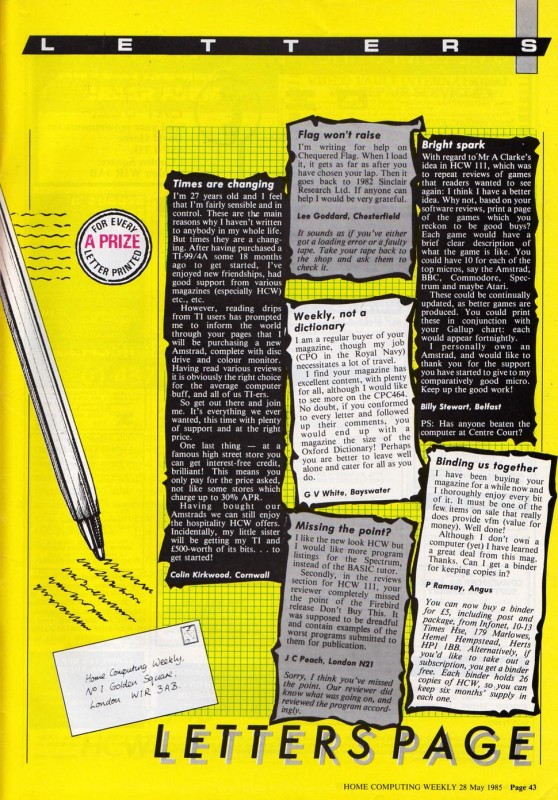 LETTERS
FOR EVERY
A PRIZE
LETTER PRINTED
Times are changing
I'm 27 years old and I feel
that I'm fairly sensible and in
control. These are the main
reasons why I haven't written
to anybody in my whole life.
But times they are a chang-
ing. After having purchased a
TI-99/4A some 18 months
ago to get started, I've
enjoyed new friendships, had
good support from various
magazines (especially HCW)
etc., etc.
However, reading drips
from TI users has prompted
me to inform the world
through your pages that I
will be purchasing a new
Amstrad, complete with disc
drive and colour monitor.
Having read various reviews
it is obviously the right choice
for the average computer
buff, and all of us TI-ers.
So get out there and join
me. It's everything we ever
wanted, this time with plenty
of support and at the right
price.
One last thing — at a
famous high street store you
can get interest-free credit,
brilliant! This means you
only pay for the price asked,
not like some stores which
charge up to 30% APR.
Having bought our
Amstrads we can still enjoy
the hospitality HCW offers.
Incidentally, my little sister
will be getting my TI and
£500-worth of its bits. . . to
get started!
Colin Kirkwood, Cornwall
Flag won't raise
I'm writing for help on
Chequered Flag. When I load
it, it gets as far as after you
have chosen your lap. Then it
goes back to 1982 Sinclair
Research Ltd. If anyone can
help I would be very grateful.
Lee Goddard, Chesterfield
It sounds as if you've either
got a loading error or a faulty
tape. Take your tape back to
the shop and ask them to
check it.
Weekly, not a
dictionary
I am a regular buyer of your
magazine, though my job
(CPO in the Royal Navy)
necessitates a lot of travel.
I find your magazine has
excellent content, with plenty
for all, although I would like
to see more on the CPC464.
No doubt, if you conformed
to every letter and followed
up their comments, you
would end up with a
magazine the size of the
Oxford Dictionary! Perhaps
you are better to leave well
alone and cater for all as you
do.
G V White, Bayswater
Missing the point?
I like the new look HCW but
I would like more program
listings for the Spectrum,
instead of the BASIC tutor.
Secondly, in the reviews
section for HCW 111, your
reviewer completely missed
the point of the Firebird
release Don't Buy This. It
was supposed to be dreadful
and contain examples of the
worst programs submitted to
them for publication.
J C Peach, London N21
Sorry, I think you've missed
the point. Our reviewer did
know what was going on, and
reviewed the program accord-
ingly.
Bright spark
With regard to Mr A Clarke's
idea in HCW 111, which was
to repeat reviews of games
that readers wanted to see
again: I think I have a better
idea. Why not, based on your
software reviews, print a page
of the games which you
reckon to be good buys?
Each game would have a
brief clear description of
what the game is like. You
could have 10 for each of the
top micros, say the Amstrad,
BBC, Commodore, Spec-
trum and maybe Atari.
These could be continually
updated, as better games are
produced. You could print
these in conjunction with
your Gallup chart: each
would appear fortnightly.
I personally own an
Amstrad, and would like to
thank you for the support
you have started to give to my
comparatively good micro.
Keep up the good work!
Billy Stewart, Belfast
PS: Has anyone beaten the
computer at Centre Court?
Binding us together
I have been buying your
magazine for a while now and
I thoroughly enjoy every bit
of it. It must be one of the
few items on sale that really
does provide vfm (value for
money). Well done!
Although I don't own a
computer (yet) I have learned
a great deal from this mag.
Thanks. Can I get a binder
for keeping copies in?
P Ramsay, Angus
You can now buy a binder
for £5, including post and
package, from Infonet, 10-13
Times Hse, 179 Marlowes,
Hemel Hempstead, Herts
HP1 1BB. Alternatively, if
you'd like to take out a
subscription, you get a binder
free. Each binder holds 26
copies of HCW, so you can
keep six months' supply in
each one.
Home Computing Weekly,
No 1 Golden Square,
London W1R 3AB.
LETTERS PAGE
HOME COMPUTING WEEKLY 28 May 1985 Page 43